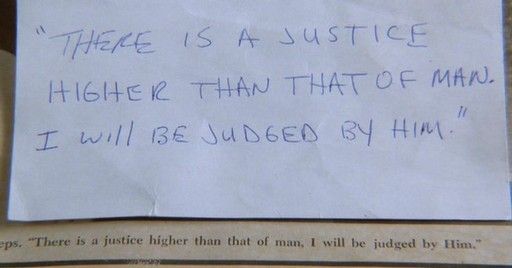 "THERE IS A JUSTICE
HIGHER THAN THAT OF MAN.
I will BE JUDGED BY HIM."
eps. "There is a justice higher than that of man, I will be judged by Him."